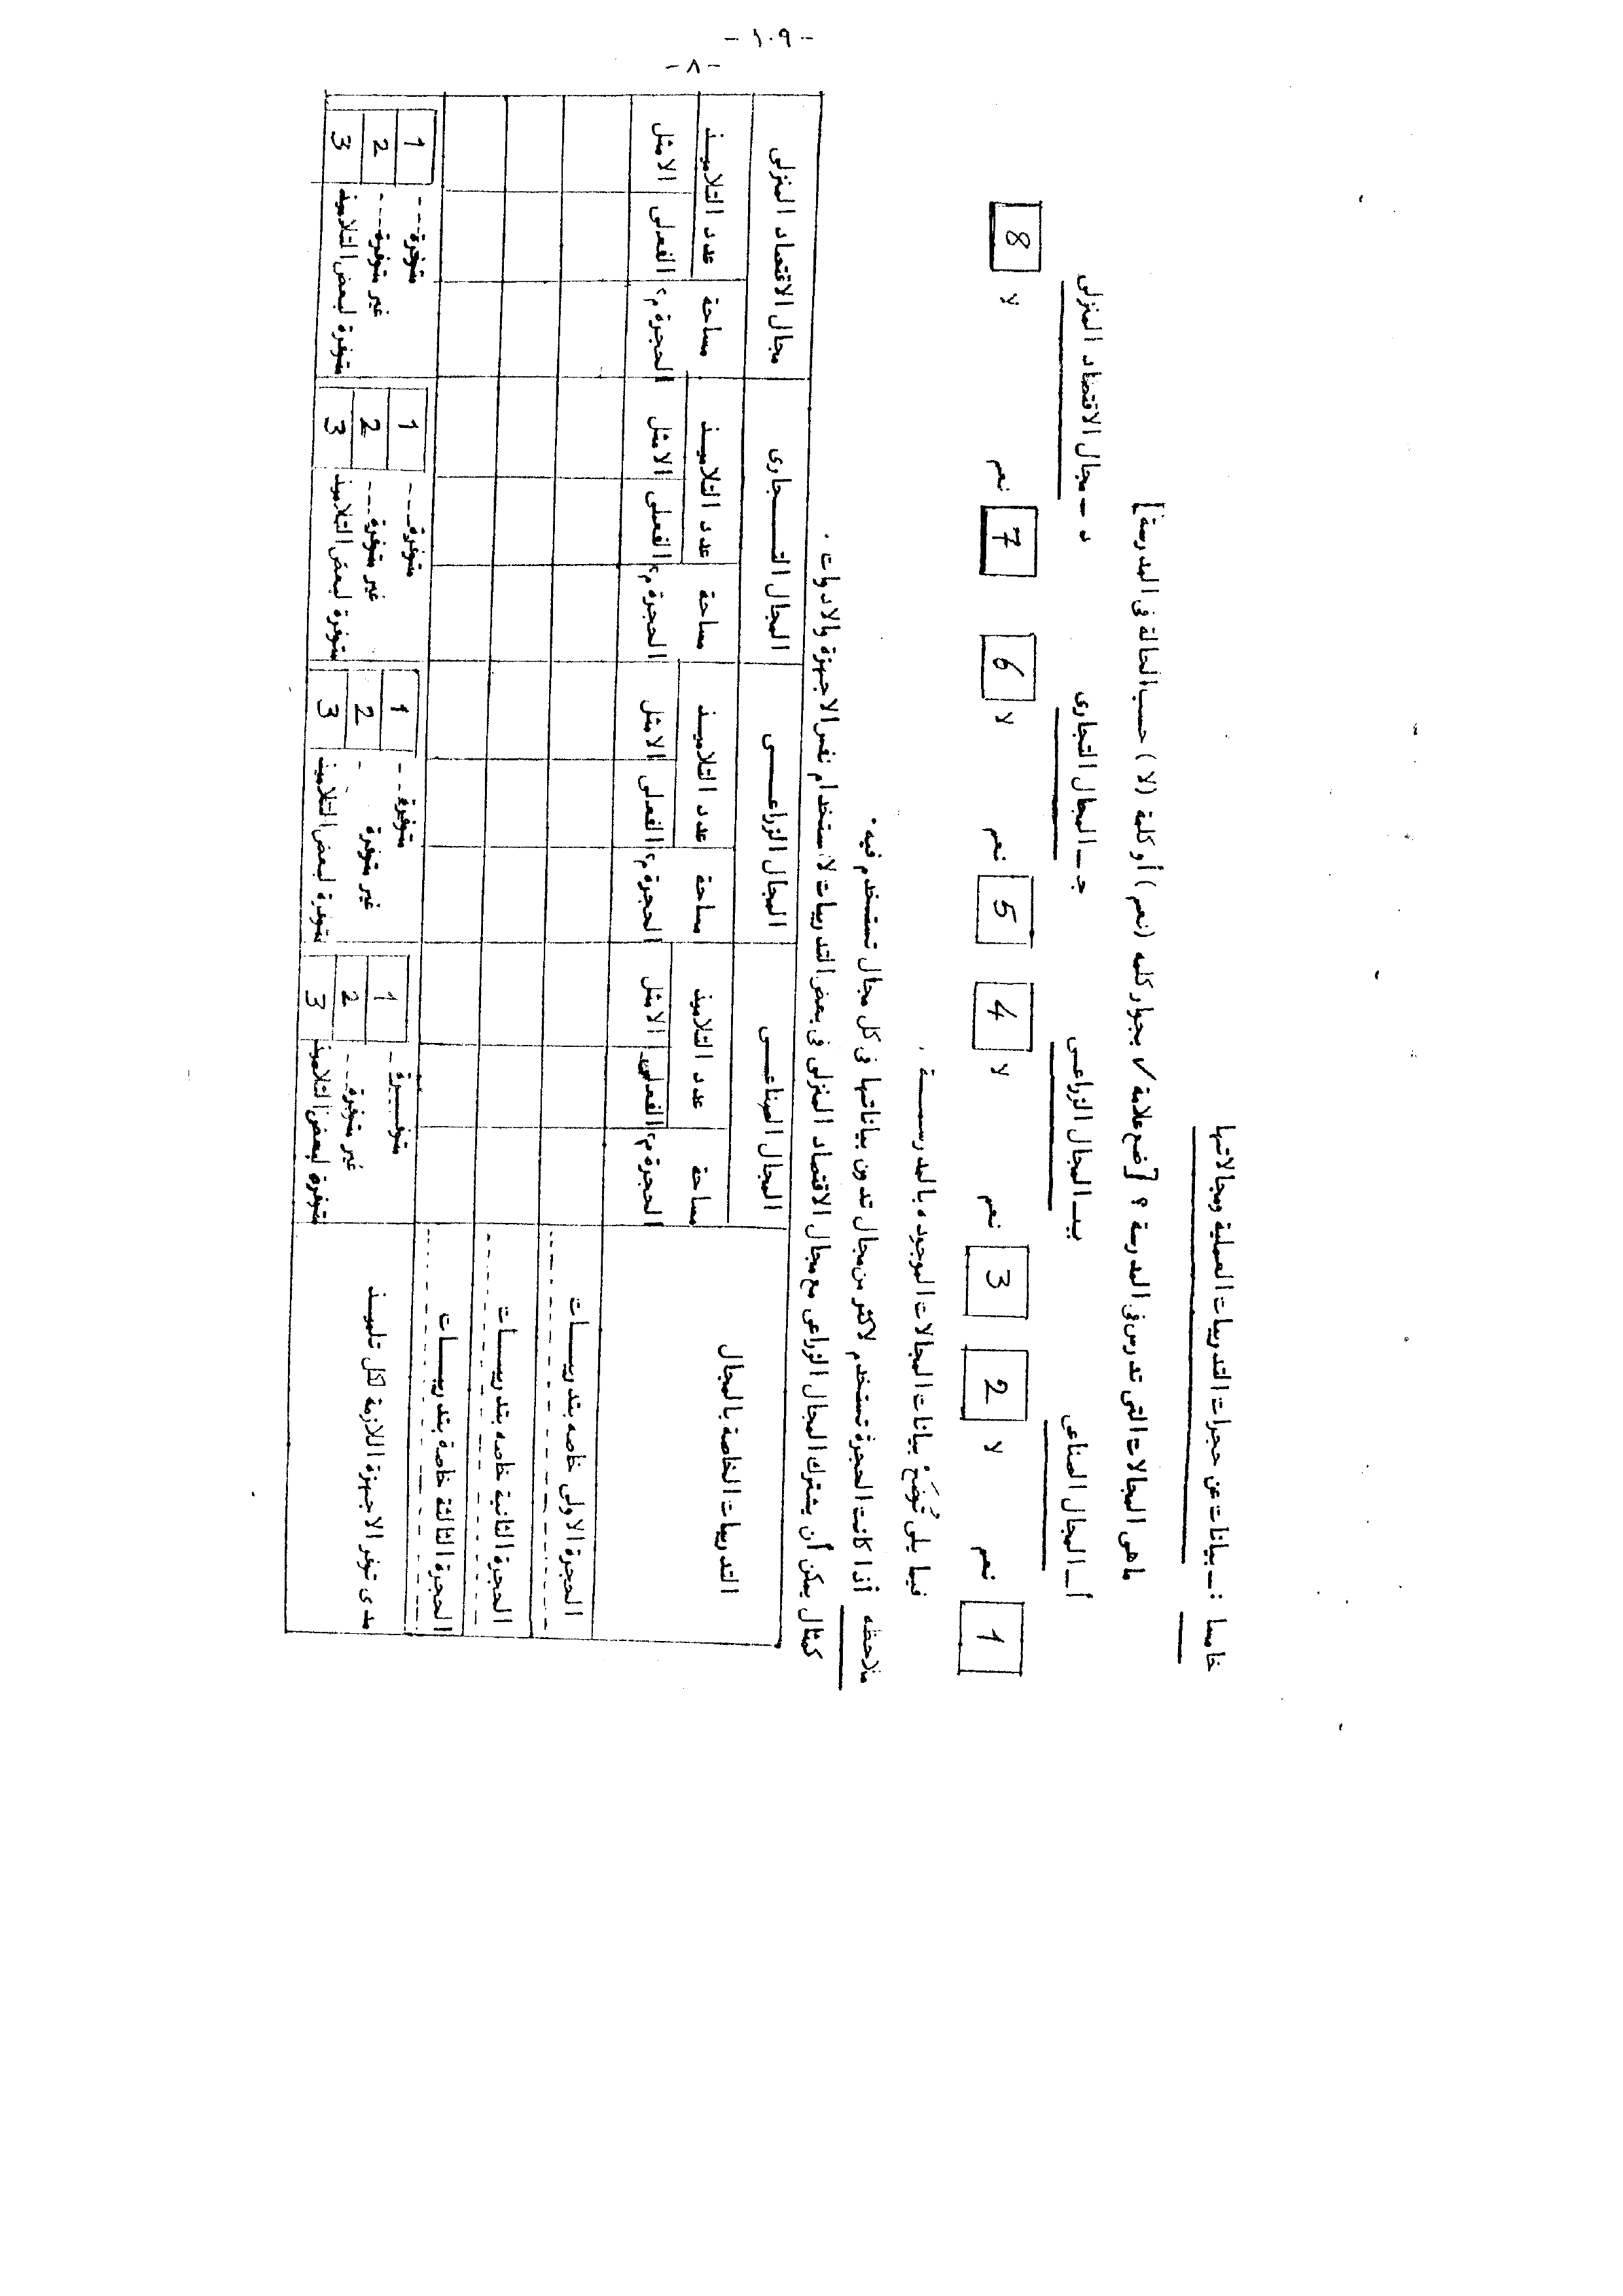 - ١٠٩ -
- ٨ -
خامسا : ــ بيانات عن حجرات التدريبات العملية ومجالاتها
ما هى المجالات التى تدرس فى المدرسة ؟ [ضع علامة ✓ بجوار كلمه (نعم) أو كلمة (لا) حسب الحالة فى المدرسة]
أ ــ المجال الصناعى ب ــ المجال الزراعى جـ ــ المجال التجارى د ــ مجال الاقتصاد المنزلى
1 نعم لا 2 3 نعم لا 4 5 نعم لا 6 7 نعم لا 8
فيما يلى تُوضَع بيانات المجالات الموجوده بالمدرســــة .
ملاحظه أذا كانت الحجرة تستخدم لاكثر من مجال تدون بياناتها فى كل مجال تستخدم فيه .
كمثال يمكن أن يشترك المجال الزراعى مع مجال الاقتصاد المنزلى فى بعض التدريبات لاستخدام نفس الاجهزة والادوات .
التدريبات الخاصة بالمجال المجال الصناعــى المجال الزراعــى المجال التــــجارى مجال الاقتصاد المنزلى
مساحة عدد التلاميذ مساحة عدد التلاميــذ مساحة عدد التلاميــذ مساحة عدد التلاميــذ
الحجرة م٢ الفعلى الامثل الحجرة م٢ الفعلى الامثل الحجرة م٢ الفعلى الامثل الحجرة م٢ الفعلى الامثل
الحجرة الاولى خاصه بتدريبـــات
الحجرة الثانية خاصه بتدريبـــات
الحجرة الثالثة خاصة بتدريبـــات
مدى توفر الاجهزة اللازمة لكل تلميــذ
متوفـــرة 1 متوفرة 1 متوفرة 1 متوفرة 1
غير متوفرة 2 غير متوفرة 2 غير متوفرة 2 غير متوفرة 2
متوفرة لبعض التلاميذ 3 متوفرة لبعض التلاميذ 3 متوفرة لبعض التلاميذ 3 متوفرة لبعض التلاميذ 3